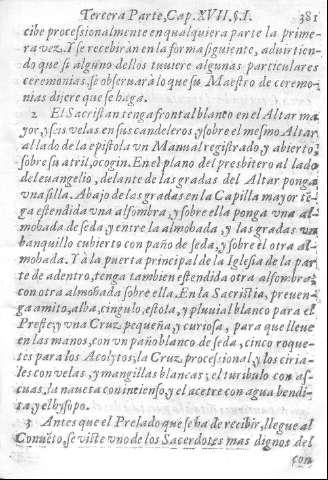 Tercera Parte, Cap. XVII. §. I. 381
cibe processionalmente en qualquiera parte la prime-
ra vez. Y se recebiràn en la forma siguiente, advirtien-
do que si alguno dellos tuviere algunas particulares
ceremonias, se observarà lo que su Maestro de ceremo-
nias dijere que se haga.
2 El Sacristan tenga frontal blanco en el Altar ma-
yor, y seis velas en sus candeleros, y sobre el mesmo Altar
al lado de la epistola vn Manual registrado, y abierto
sobre su atril, ò cogin. En el plano del presbiterio al lado
del euangelio, delante de las gradas del Altar ponga
vna silla. Abajo de las gradas en la Capilla mayor te-
ga estendida vna alfombra, y sobre ella ponga vna al-
mohada de seda, y entre la almohada, y las gradas vn
banquillo cubierto con paño de seda, y sobre el otra al-
mohada. Y à la puerta principal de la Iglesia de la par-
te de adentro, tenga tambien estendida otra alfombra,
con otra almohada sobre ella. En la Sacristia, preven-
ga amito, alba, cingulo, estola, y pluuial blanco para el
Preste; y vna Cruz pequeña, y curiosa, para que lleue
en las manos, con vn paño blanco de seda; cinco roque-
tes para los Acolytos; la Cruz processional, y los ciria-
les con velas, y mangillas blancas; el turibulo con as-
cuas, la naueta con incienso, y el acetre con agua bendi-
ta, y el hysopo.
3 Antes que el Prelado que se ha de recibir, llegue al
Conuẽto, se viste vno de los Sacerdotes mas dignos del
con